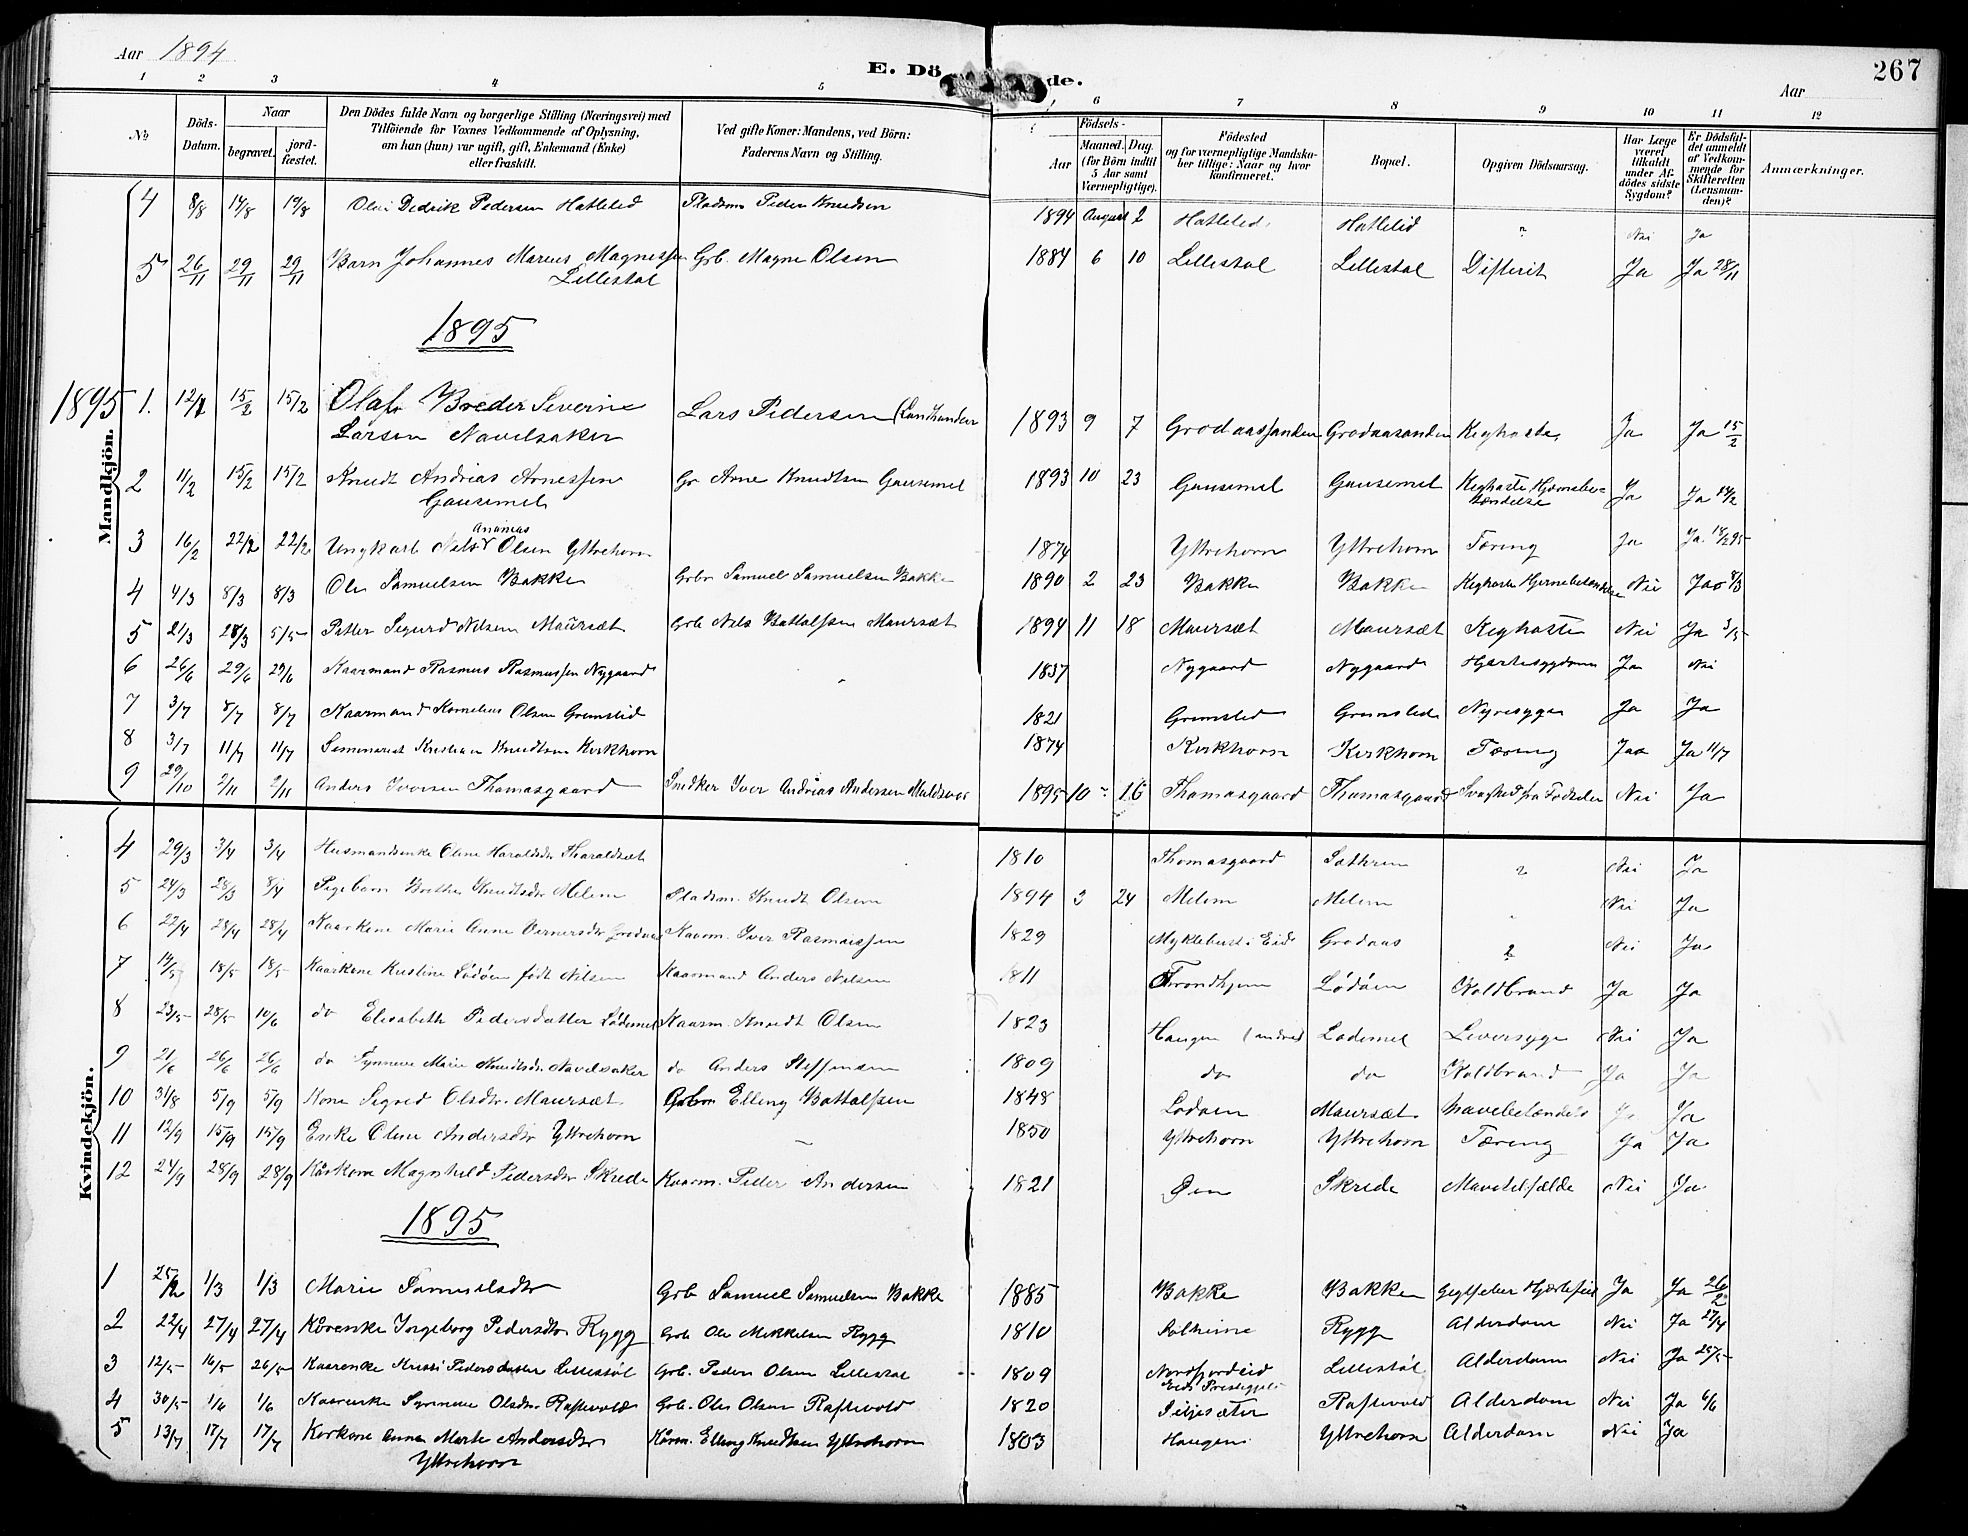 Aar 1894
E. Dö de.
267
Aar
1 2 3 4 5 6 7 8 9 10 11 12
No
Döds-Datum.
Naar
begravet.
jord-fæstet.
Den Dödes fulde Navn og borgerlige Stilling (Næringsvei) med
Tilföiende for Voxnes Vedkommende af Oplysning,
om han (hun) var ugift, gift, Enkemand (Enke)
eller fraskilt.
Ved gifte Koner: Mandens, ved Börn:
Faderens Navn og Stilling.
Födsels-
Aar
Maaned. Dag.
(for Börn indtil
5 Aar samt
Værnepligtige).
Födested
og for værnepligtige Mandska-
ber tillige: Naar og hvor
konfirmeret.
Bopæl.
Opgiven Dödsaarsag.
Har Læge
været
tilkaldt
under Af-
dödes sidste
Sygdom?
Er Dödsfal-
det anmeldt
af Vedkom-
mende for
Skifteretten
(Lensman-
den)?
Anmærkninger.
Mandkjön.
4 8/8 14/8 14/8 Olai Dedrik Pedersen Hatlelid Pladsm Peder Knudsen 1894 August 2 Hatlelid Hatlelid ? Nei Ja
5 26/11 29/11 29/11 Barn Johannes Marius Magnessen Grb. Magne Olsen 1884 6 10 Lillestøl Lillestøl Difterit Ja Ja 28/11
Lillestøl
1895
1895 1. 12/2 15/2 15/2 Olaf Breder Severine Lars Pedersen (Landhandler 1893 9 7 Grodaassanden Grodaasanden Kighoste Ja Ja 15/2
Larsen Navelsaker
2 11/2 15/2 15/2 Knudt Andrias Arnessen Gr Arne Knudtsen Gausemel 1893 10 23 Gausemel Gausemel Kighoste Hjernebe-
Gausemel tændelse Ja Ja 14/2
3 16/2 22/2 22/2 Ungkarl Nils Ananias Olsen Yttrehorn 1874 Yttrehorn Yttrehorn Tæring Ja Ja 18/2 95
4 4/3 8/3 8/3 Ole Samuelsen Bakke Grbr Samuel Samuelsen Bakke 1890 2 23 Bakke Bakke Kighoste Hjernebetændelse Nei Ja 8/3
5 21/3 28/3 5/5 Petter Sigurd Nilsen Maursæt Grb Nils Battalfsen Maursæt 1894 11 18 Maursæt Maursæt Kighoste Nei Ja 3/5
6 26/6 29/6 29/6 Kaarmand Rasmus Rasmussen Nygaard 1837 Nygaard Nygaard Hjertesygdom Ja Nei
7 3/7 8/7 8/7 Kaarmand Kornelius Olsen Gremslid 1821 Gremslid Gremslid Nyresyge Ja Ja
8 3/7 11/7 11/7 Seminarist Kristian Knudtsen Kirkhorn 1874 Kirkhorn Kirkhorn Tæring Jaa Ja 11/7
9 29/10 2/11 2/11 Anders Iversen Thomasgaard Snedker Iver Andrias Andersen Maldsvor 1895 10 16 Thomasgaard Thomasgaard Svaghed fra Fødselen Nei Ja
Kvindekjön.
4 29/3 3/4 3/4 Husmandsenke Oline Haraldsdr Tharaldsæt 1810 Thomasgaard Sæthren ? Nei Ja
5 24/3 28/3 8/4 Pigebarn Brithe Knudtsdr Melem Pladsm. Knudt Olsen 1894 3 24 Melem Melem Nei Ja
6 22/4 28/4 28/4 Kaarkone Marie Anne Vernersdr Grodaas Kaarm. Iver Rasmussen 1829 Myklebust i Eid Grodaas ? Nei Ja
7 14/5 18/5 18/5 Kaarkone Kristine Lödöen født Nilsen Kaarmand Anders Nilsen 1811 Trondhjem Lödöen Koldbrand Ja Ja
8 23/5 28/5 10/6 do Elisabeth Pedersdatter Lödemel Kaarm. Knudt Olsen 1823 Haugen (indvik) Lødemel Leversyge Nei Ja
9 21/6 26/6 26/6 do Synneve Marie Knudtsdr Navelsaker do Anders Steffensen 1809 do do Koldbrand Ja Ja
10 31/8 5/9 5/9 Kone Sigrid Olsdtr. Maursæt Grbr Elling Battalfsen 1848 Lødøen Maursæt Mavebetændels Ja Ja
11 12/9 15/9 15/9 Enke Oline Andersdtr Yttrehorn 1850 Yttrehorn Yttrehorn Tæring Ja Ja
12 24/9 28/9 28/9 Kårkone Magnhild Pedersdtr Skrede Kaarm. Peder Andersen 1821 Øen Skrede Mavetilfælde Nei Ja
1895
1 25/2 1/3 1/3 Marie Samuelsdtr Grb Samuel Samuelsen Bakke 1885 Bakke Bakke Gigtfeber Hjertefeil Ja Ja 26/2
2 22/4 27/4 27/4 Kårenke Ingeborg Pedersdtr Rygg Grb Ole Mikkelsen Rygg 1810 Solheim Rygg Alderdom Nei Ja 27/4
3 12/5 16/5 26/5 Kaarenke Kristi Pedersdatter Lillestøl Grb. Peder Olsen Lillestøl 1809 Nordfjordeid Lillestøl Alderdom Nei Ja 25/5
Eids Prestegjeld
4 30/5 1/6 1/6 Kaarenke Synneve Olsdtr. Raftevold Grb. Ole Olsen Raftevold 1820 Seljesæter Raftevold Alderdom Nei Ja 6/6
5 13/7 17/7 17/7 Korkone Anne Marte Andersdtr Kårm. Elling Knudtsen Yttrehorn 1803 Haugen Yttrehorn Alderdom Nei Ja
Yttrehorn